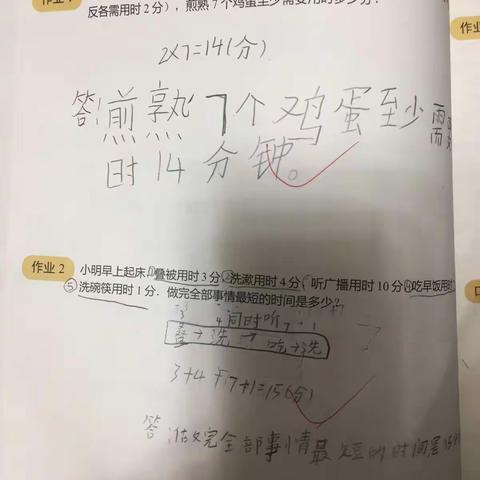 作业 1
反各需用时2分），煎熟7个鸡蛋至少需要用时多少分？
2×7=14(分)
答：煎熟7个鸡蛋至少需
时14分钟。
作业 2 小明早上起床，①叠被用时3分②洗漱用时4分，听广播用时10分④吃早饭用时
⑤洗碗筷用时1分．做完全部事情最短的时间是多少？
3 4 同时听 7 1
叠→洗→吃→洗
3+4+7+1=15(分)
答：做完全部事情最短的时间是15